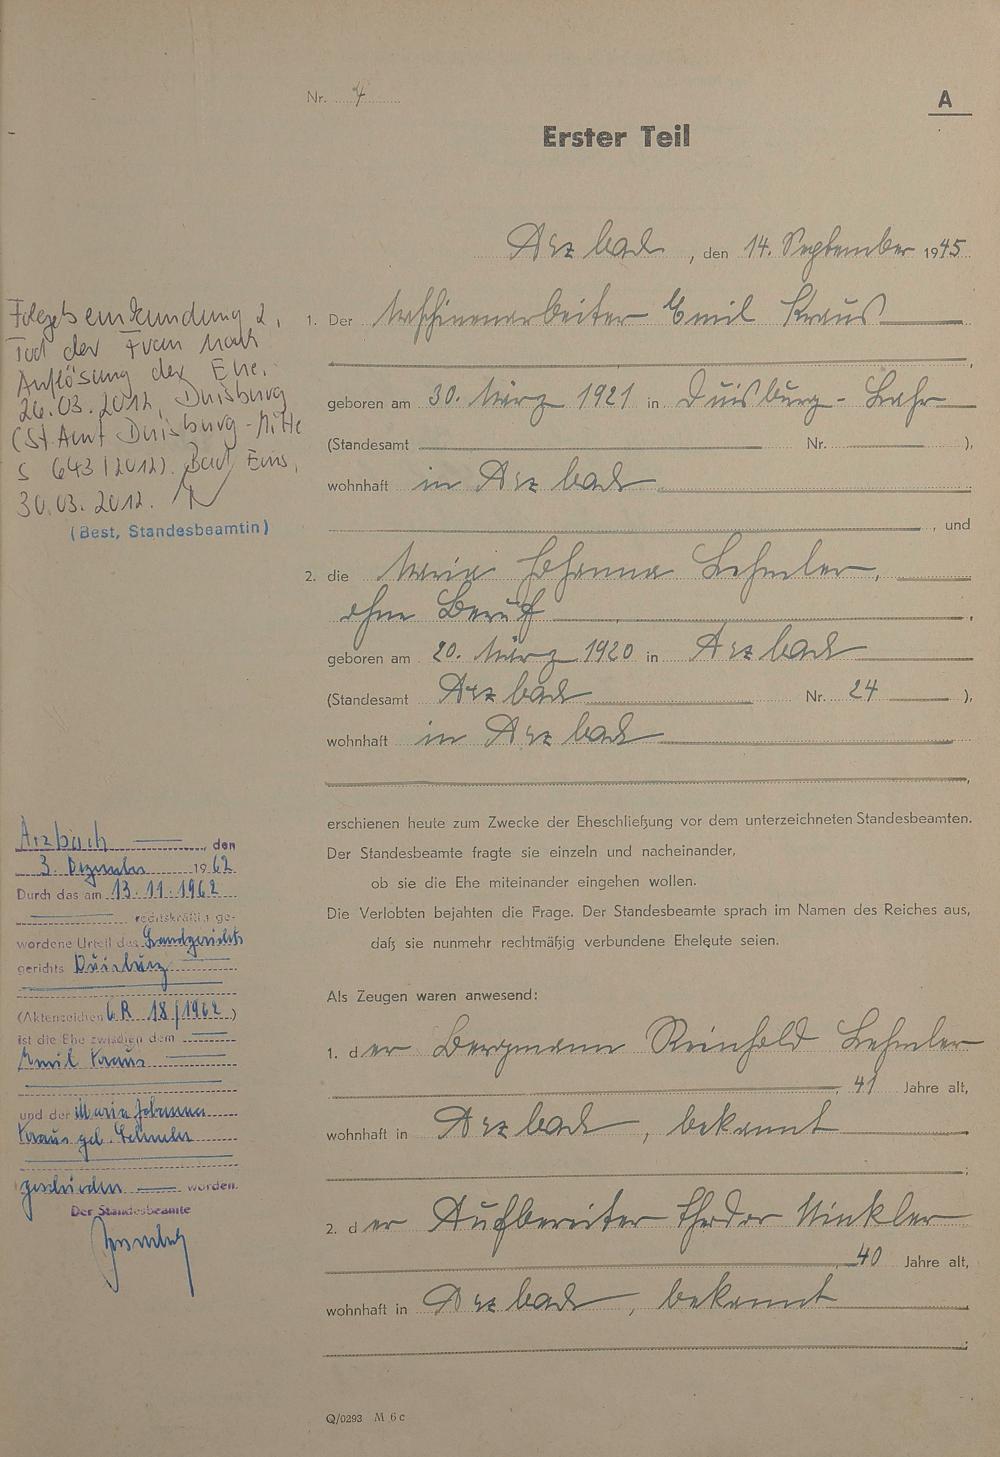 Nr. 4
A
Erster Teil
Arzbach, den 14. September 1945
1. Der Maschinenarbeiter Emil Kraus
geboren am 30. März 1921 in Duisburg-
(Standesamt Nr. ),
wohnhaft in Arzbach
, und
2. die Maria Johanna Lehmler,
ohne Beruf,
geboren am 20. März 1920 in Arzbach
(Standesamt Arzbach Nr. 24 ),
wohnhaft in Arzbach
erschienen heute zum Zwecke der Eheschließung vor dem unterzeichneten Standesbeamten.
Der Standesbeamte fragte sie einzeln und nacheinander,
ob sie die Ehe miteinander eingehen wollen.
Die Verlobten bejahten die Frage. Der Standesbeamte sprach im Namen des Reiches aus,
daß sie nunmehr rechtmäßig verbundene Eheleute seien.
Als Zeugen waren anwesend:
1. der Bergmann Reinhold Lehmler
, 41 Jahre alt,
wohnhaft in Arzbach, bekannt
;
2. der Aufbereiter Theodor Winkler
, 40 Jahre alt,
wohnhaft in Arzbach, bekannt
Q/0293 M 6 c
Folgebeurkundung 2,
Tod der Frau nach
Auflösung der Ehe.
26.03.2012, Duisburg
(St.Amt Duisburg-Mitte
S 643/2012). Bad Ems,
30.03.2012.
(Best, Standesbeamtin)
Arzbach, den
3. Dezember 1962
Durch das am 13.11.1962
rechtskräftig ge-
wordene Urteil des Landgerichts
gerichts Duisburg
(Aktenzeichen 6 R 18/1962)
ist die Ehe zwischen dem
Emil Kraus
und der Maria Johanna
Kraus geb. Lehmler
geschieden worden.
Der Standesbeamte